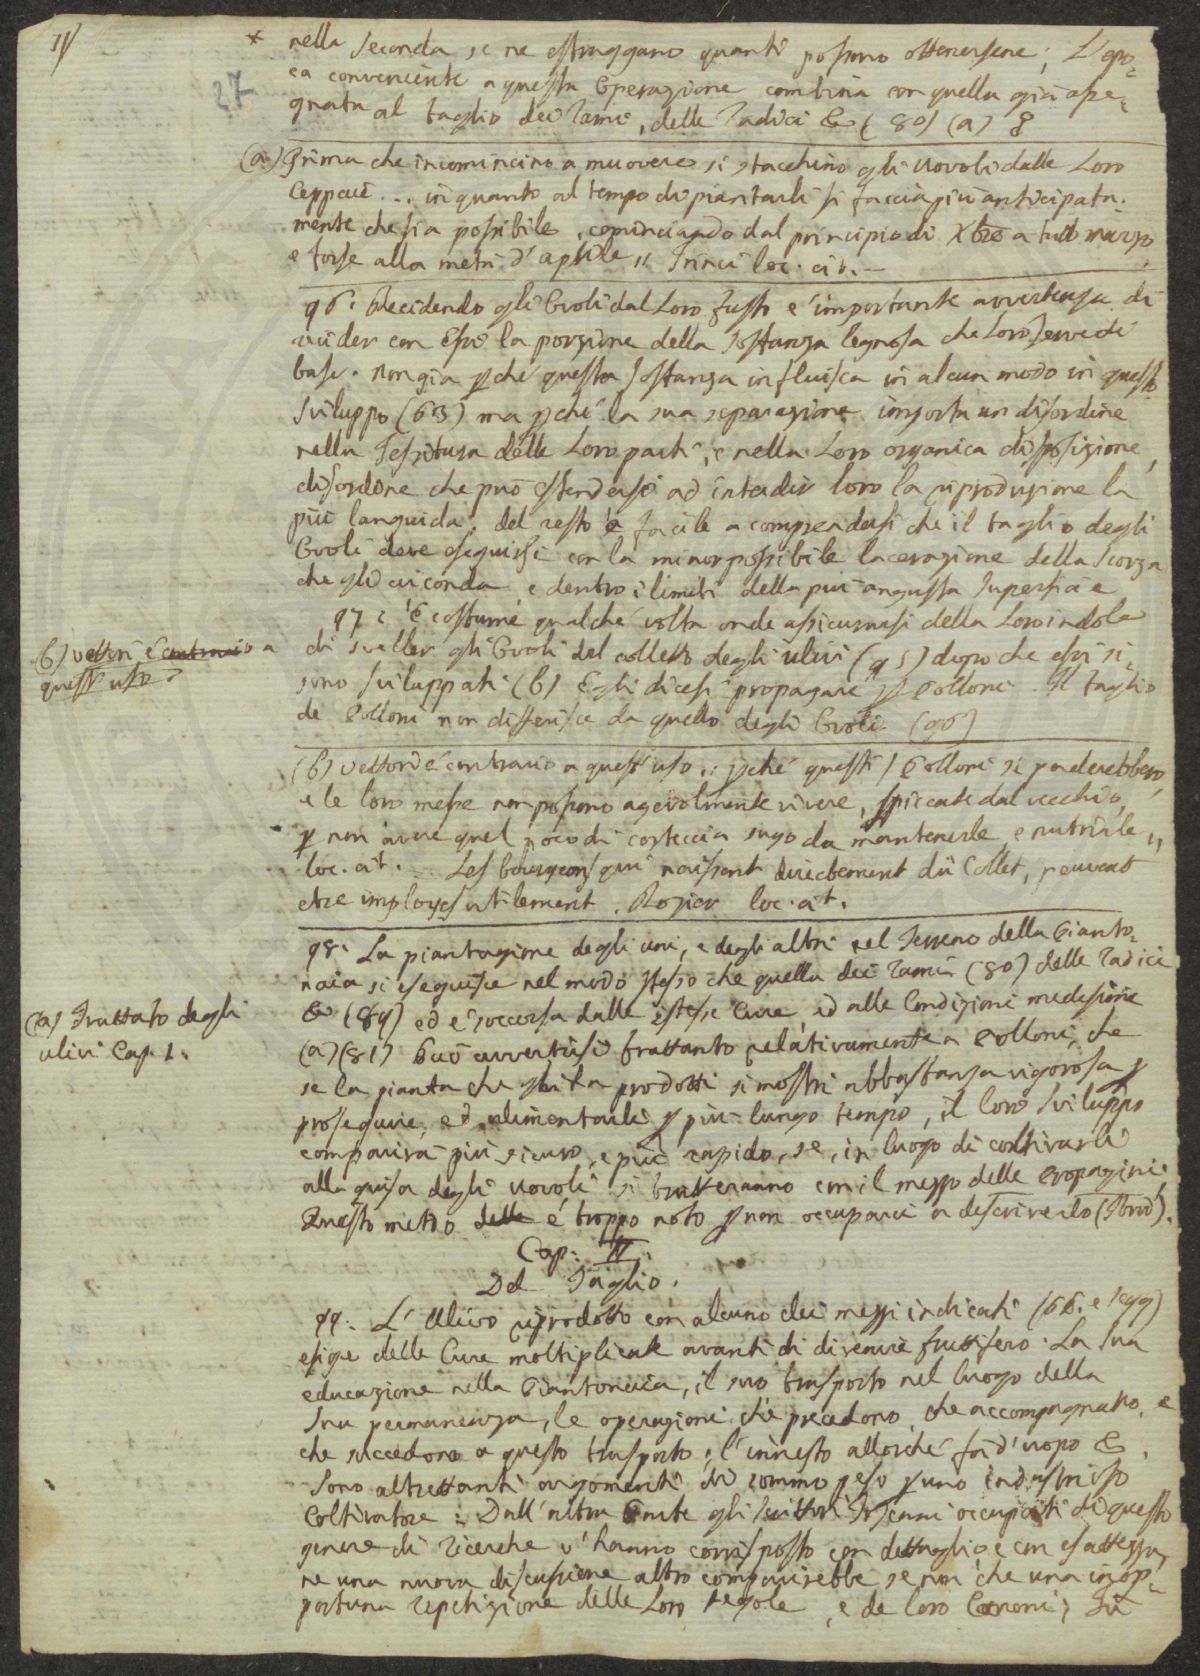 nella seconda, se ne estraggano quanti possono ottenersene; L'epo-
ca conveniente a questa Operazione combina con quella già asse-
gnata al taglio dei rami, delle radici &. (80) (a)
27
(a) Prima che incomincino a muovere si stacchino gli uovoli dalle Loro
Ceppaie ... in quanto al tempo di piantarli si faccia più anticipata-
mente che sia possibile, cominciando dal principio di Xbre a tutto marzo
e forse alla metà d'aprile,, loc. cit. —
96. Recidendo gli Uvoli dal Loro fusto è importante avvertenza di
recider con Essi la porzione della Sostanza legnosa che Loro serve di
base. Non già pché questa Sostanza influisca in alcun modo in questo
Sviluppo (63) ma pché la sua separazione importa un disordine
nella Tessitura delle Loro parti, e nella Loro organica disposizione,
disordine che può estendersi ad interdir loro la riproduzione la
più languida. Del resto è facile a comprendersi che il taglio degli
Uvoli deve eseguirsi con la minor possibile lacerazione della Scorza
che gli circonda e dentro i limiti della più angusta Superficie
97. È costume qualche volta onde assicurarsi della Loro indole
di sveller gli Uvoli del colletto degli ulivi (95) dopo che essi si
sono sviluppati (b) Egli dicesi propagare p Polloni. Il taglio
de Polloni non differisce da quello degli Uvoli (96)
(b) Vettori è contrario a
quest'uso
(b) Vettori è contrario a quest'uso ,, pché questi Polloni si perderebbero,
e le loro messe non possono agevolmente vivere, spiccate dal vecchio,
p non avere quel poco di corteccia sugo da mantenerle e nutrirle,,
loc. cit. = Les bourgeons qui naissent directement du Collet, peuvent
etre employes utilement. Rozier loc. cit.
98. La piantagione degli uni, e degli altri nel Terreno della Pianto-
naia si eseguisce nel modo stesso che quella dei rami (80) delle radici
& (89) ed è soccorsa dalle istesse Cure, ed alle Condizioni medesime
(a) (81) Può avvertirsi frattanto relativamente a Polloni, che
(a) Trattato degli
ulivi Cap. 1.
se la pianta che gli ha prodotti si mostri abbastanza vigorosa p
proseguire, ed alimentarli p più lungo tempo, il loro Sviluppo
comparirà più sicuro, e più rapido, se, in luogo di coltivarli
alla guisa degli uovoli si tratteranno con il mezzo delle Propagini.
Questo metodo delle è troppo noto p non occuparci a descriverlo
Cap. II.
Del Taglio.
99. L'Ulivo riprodotto con alcuno dei mezzi indicati (66. e segg)
esige delle Cure moltiplicate avanti di divenire fruttifero. La Sua
educazione nella Piantonaia, il suo trasporto nel luogo della
Sua permanenza, le operazioni che precedono, che accompagnano, e
che succedono a questo trasporto, l'innesto allorché fa d'uopo &.
Sono altrettanti argomenti di sommo peso p uno industrioso
Coltivatore. Dall'altra Parte gli Scrittori Toscani occupati di questo
genere di ricerche v'hanno corrisposto con dettaglio e con esattezza,
ne una nuova discussione altro comparirebbe se non che una inop-
portuna repetizione delle Loro regole, e de loro Canoni;